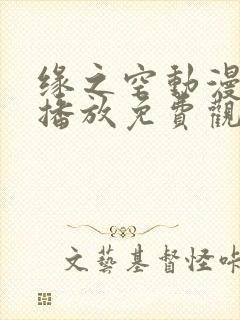 缘之空動漫
播放免費觀
文藝基督怪咔